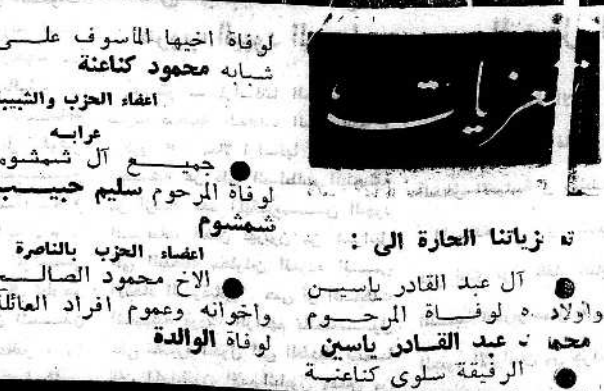 تعزيات
تعزياتنا الحارة الى :
● آل عبد القادر ياسين
واولاده لوفاة المرحوم
محمد عبد القادر ياسين
● الرفيقة سلوى كناعنة
لوفاة اخيها المأسوف على
شبابه محمود كناعنة
اعضاء الحزب والشبيبة
عرابه
● جميع آل شمشوم
لوفاة المرحوم سليم حبيب
شمشوم
اعضاء الحزب بالناصرة
● الاخ محمود الصالح
واخوانه وعموم افراد العائلة
لوفاة الوالدة